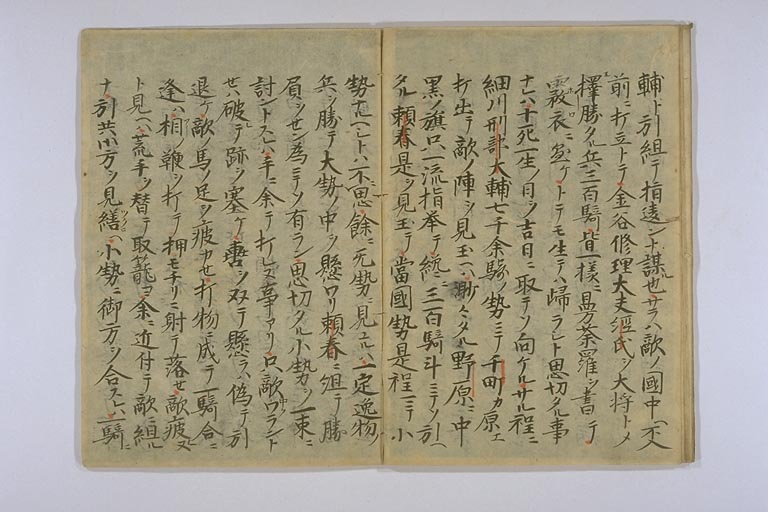 輔ト引組テ指違ント謀也サラハ敵ノ國中ヘ不入
前ニ打立トテ金谷修理大夫経氏ヲ大将トメ
擇勝タル兵三百騎皆一様ニ曼荼羅ヲ書テ
 衣ニ懸ケトテモ生テハ歸ラシト思切タル事
ナレハ十死一生ノ日ヲ吉日ニ取テソ向ケルサル程ニ
細川刑部大輔七千余騎ノ勢ニテ千町カ原エ
打出テ敵ノ陣ヲ見玉ヘハ渺々タル野原ニ中
黒ノ旗只一流指挙テ纔ニ三百騎斗ニテソ引ヘ
タル頼春是ヲ見玉テ當國勢是程ニテ小
勢ナルヘシトハ不思餘ニ无勢ニ見エルハ一定逸物ノ
兵ヲ勝テ大勢ノ中ヲ懸ワリ頼春ニ組テ勝
負ヲセン為ニテソ有ラン思切タル小勢ヲ一束ニ
討ントスレハ手ニ余テ打レヌ事アリ只敵ワラント
セハ破テ跡ヲ塞ケ轡ヲ双テ懸ラハ偽テ引
退ケ敵ノ馬ノ足ヲ疲カセ打物ニ成テ一騎合ニ
逢ハ相ノ鞭ヲ打テ押モチリニ射テ落セ敵疲ヌ
ト見ヘハ荒手ヲ替テ取籠ヨ余ニ近付テ敵ニ組ル
ナ引共御方ヲ見繕ヘ小勢ニ御方ヲ合スレハ一騎ニ